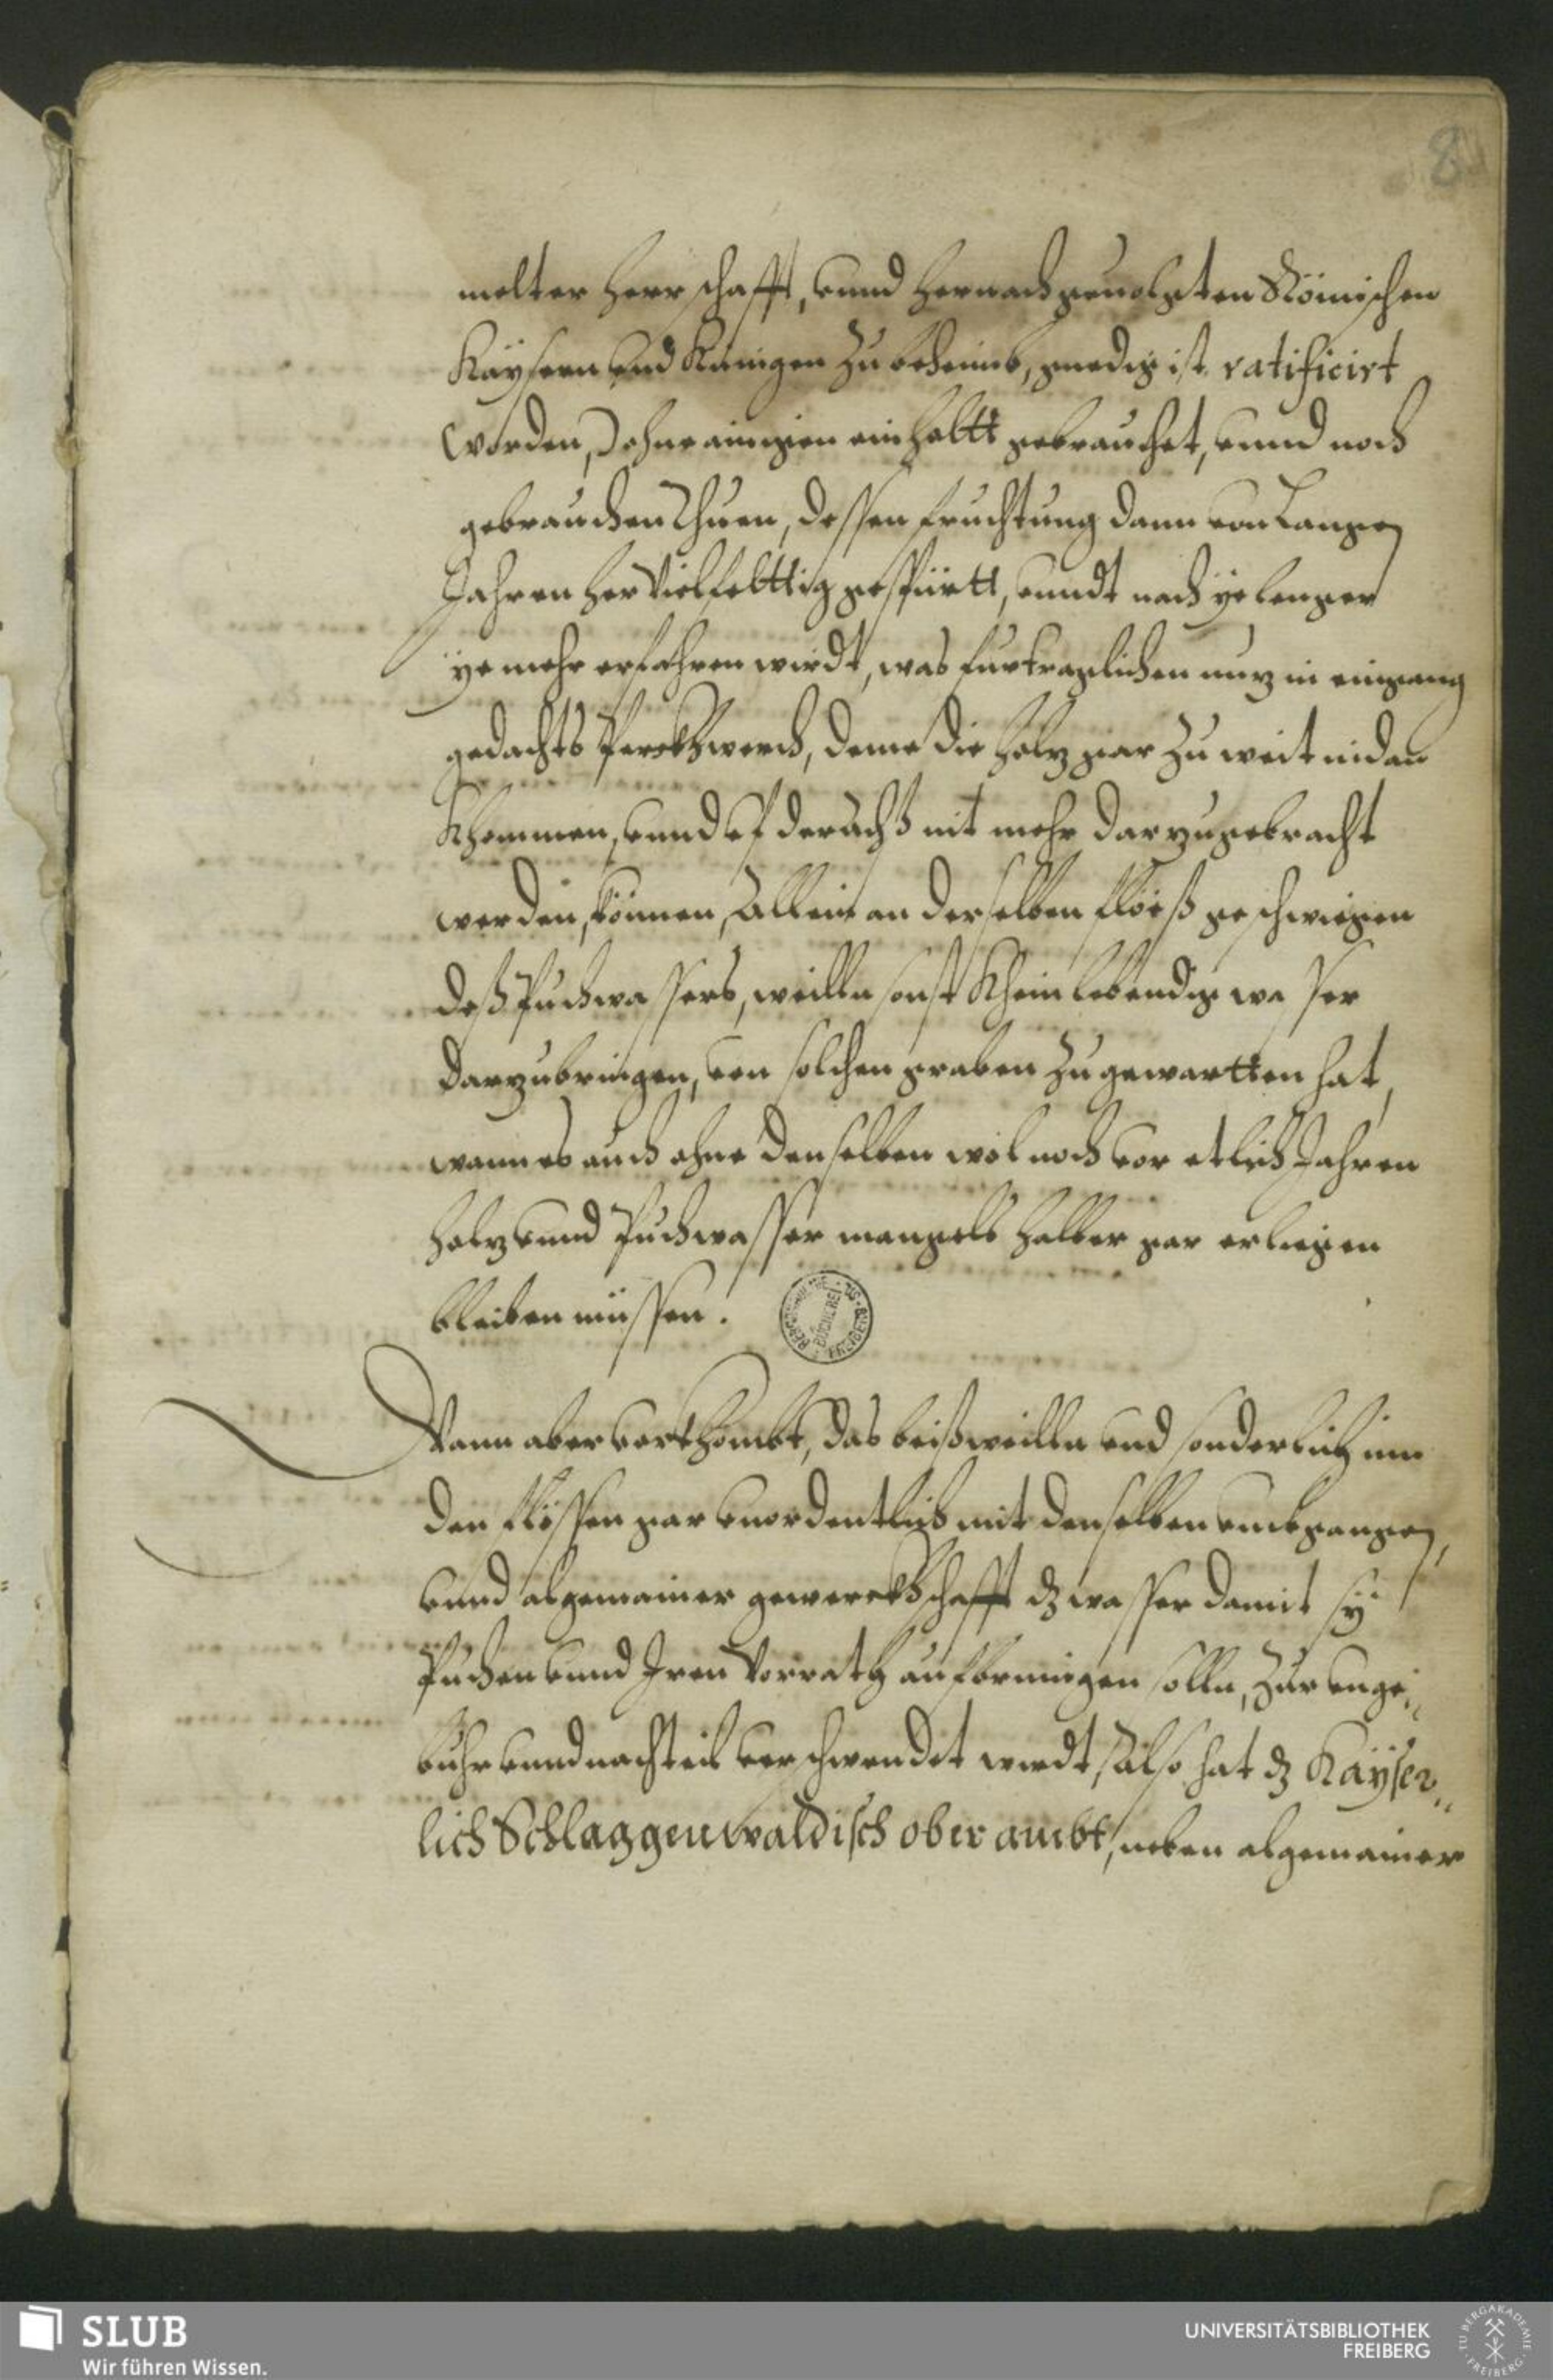 8
melter herrschafft, vnnd hernachgeuolgten Römischen
Kaÿsern vnd Kunigen zu behaimb, gnedig ist ratificirt
worden,) ohne ainigen einhaltt gebrauchet, vnnd noch
gebrauchen Thuen, dessen fruchtung dann von Langen
Jahren her vielfelttig gespürtt, vnndt nach ÿe lenger
ÿe mehr erfahren wirdt, was furtraglichen nuz in eingang
gedachts Perckhwerch, deme die holz gar zu weit
Khommen, vnnd vf der Achß nit mehr darzugebracht
werden, können, Allein an derselben flöeß geschwigen
deß Puchwassers, weilln sonst Khein lebendig wasser
darzubringen, von solchen graben zu gewartten hat,
wann es auch ohne denselben wol noch vor etlich Jahren
holz vnnd Puchwasser mangels halber gar erligen
bleiben müssen.
BÜCHEREI FREIBERG
Wann aber vorkhombt, das beißweilln vnd sonderlich inn
den flössen gar vnordentlich mit denselben vmbgangen,
vnnd algemainer gewerckhschafft dz wasser damit sÿ
Puchen vnnd Iren Vorrath aufbringen solln, zur vnge¬
buhr vnnd nachteil verschwendet wirdt, Also hat dz Kaÿser¬
lich Schlaggenwaldisch ober ambt, neben algemainer
SLUB
Wir führen Wissen.
UNIVERSITÄTSBIBLIOTHEK
FREIBERG
TU BERGAKADEMIE FREIBERG